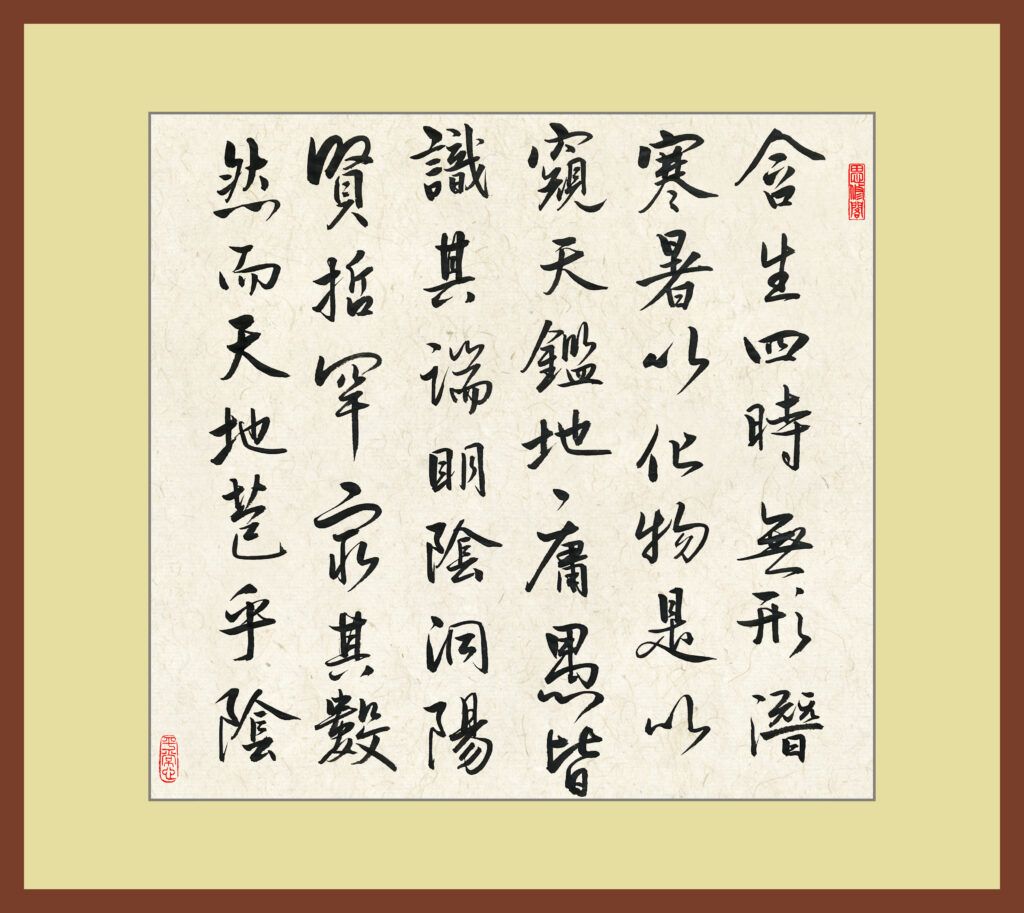 思修閣
含生四時無形潛
寒暑以化物是以
窺天鑑地庸愚皆
識其端明陰洞陽
賢哲罕窮其數
然而天地苞乎陰
平常心